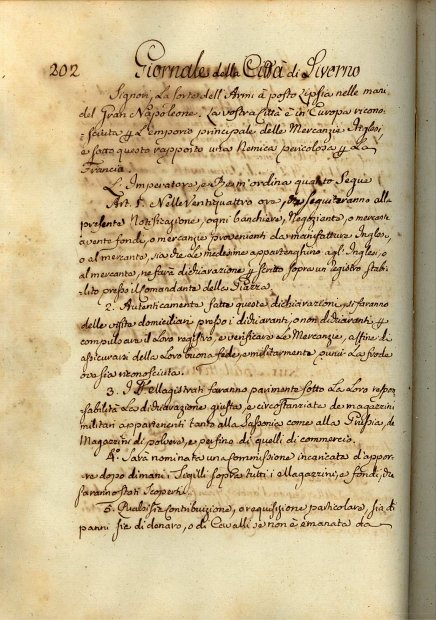 202 Giornale della Città di Livorno
Signori, La sorte dell'Armi à posto Lipsia nelle mani
del Gran Napoleone. La vostra Città è in Europa ricono-
sciuta p L'emporio principale delle Mercanzie Inglesi
e sotto questo rapporto una Nemica pericolosa p La
Francia
L'Imperatore, e Re m'ordina quanto Segue
Art. 1. Nelle ventiquattro ore, che seguiteranno alla
presente Notificazione, ogni banchiere, Negoziante, o mercante
avente fondi, o mercanzie provenienti da manifatture Inglesi,
o al mercante, sia che Le medesime appartenghino agl'Inglesi, o
al mercante, ne farà dichiarazione p scritto sopra un registro stabi-
lito presso il Comandante della Piazza.
2. Autenticamente fatta queste dichiarazioni, si faranno
delle visite domiciliari presso i dichiaranti, o non dichiaranti p
compulsare il Loro registro, e verificare Le Mercanzie, affine di
assicurarsi della Loro buona fede, e militarmente punir La frode
ove sia riconosciuta.
3. I Magistrati faranno parimente sotto La Loro respon-
sabilità La dichiarazione giusta, e circostanziata de magazzini
militari appartenenti tanto alla Sassonia come alla Prussia, de
Magazzini di polvere, e perfino di quelli di commercio.
4.° Sarà nominata una Commissione incaricata d'appor-
re dopo dimani i Sigilli sopra tutti i Magazzini, e fondi, che
saranno stati scoperti.
5. Qualsisia contribuzione, o requisizione particolare, sia di
panni sia di denaro, o di Cavalli se non è emanata da